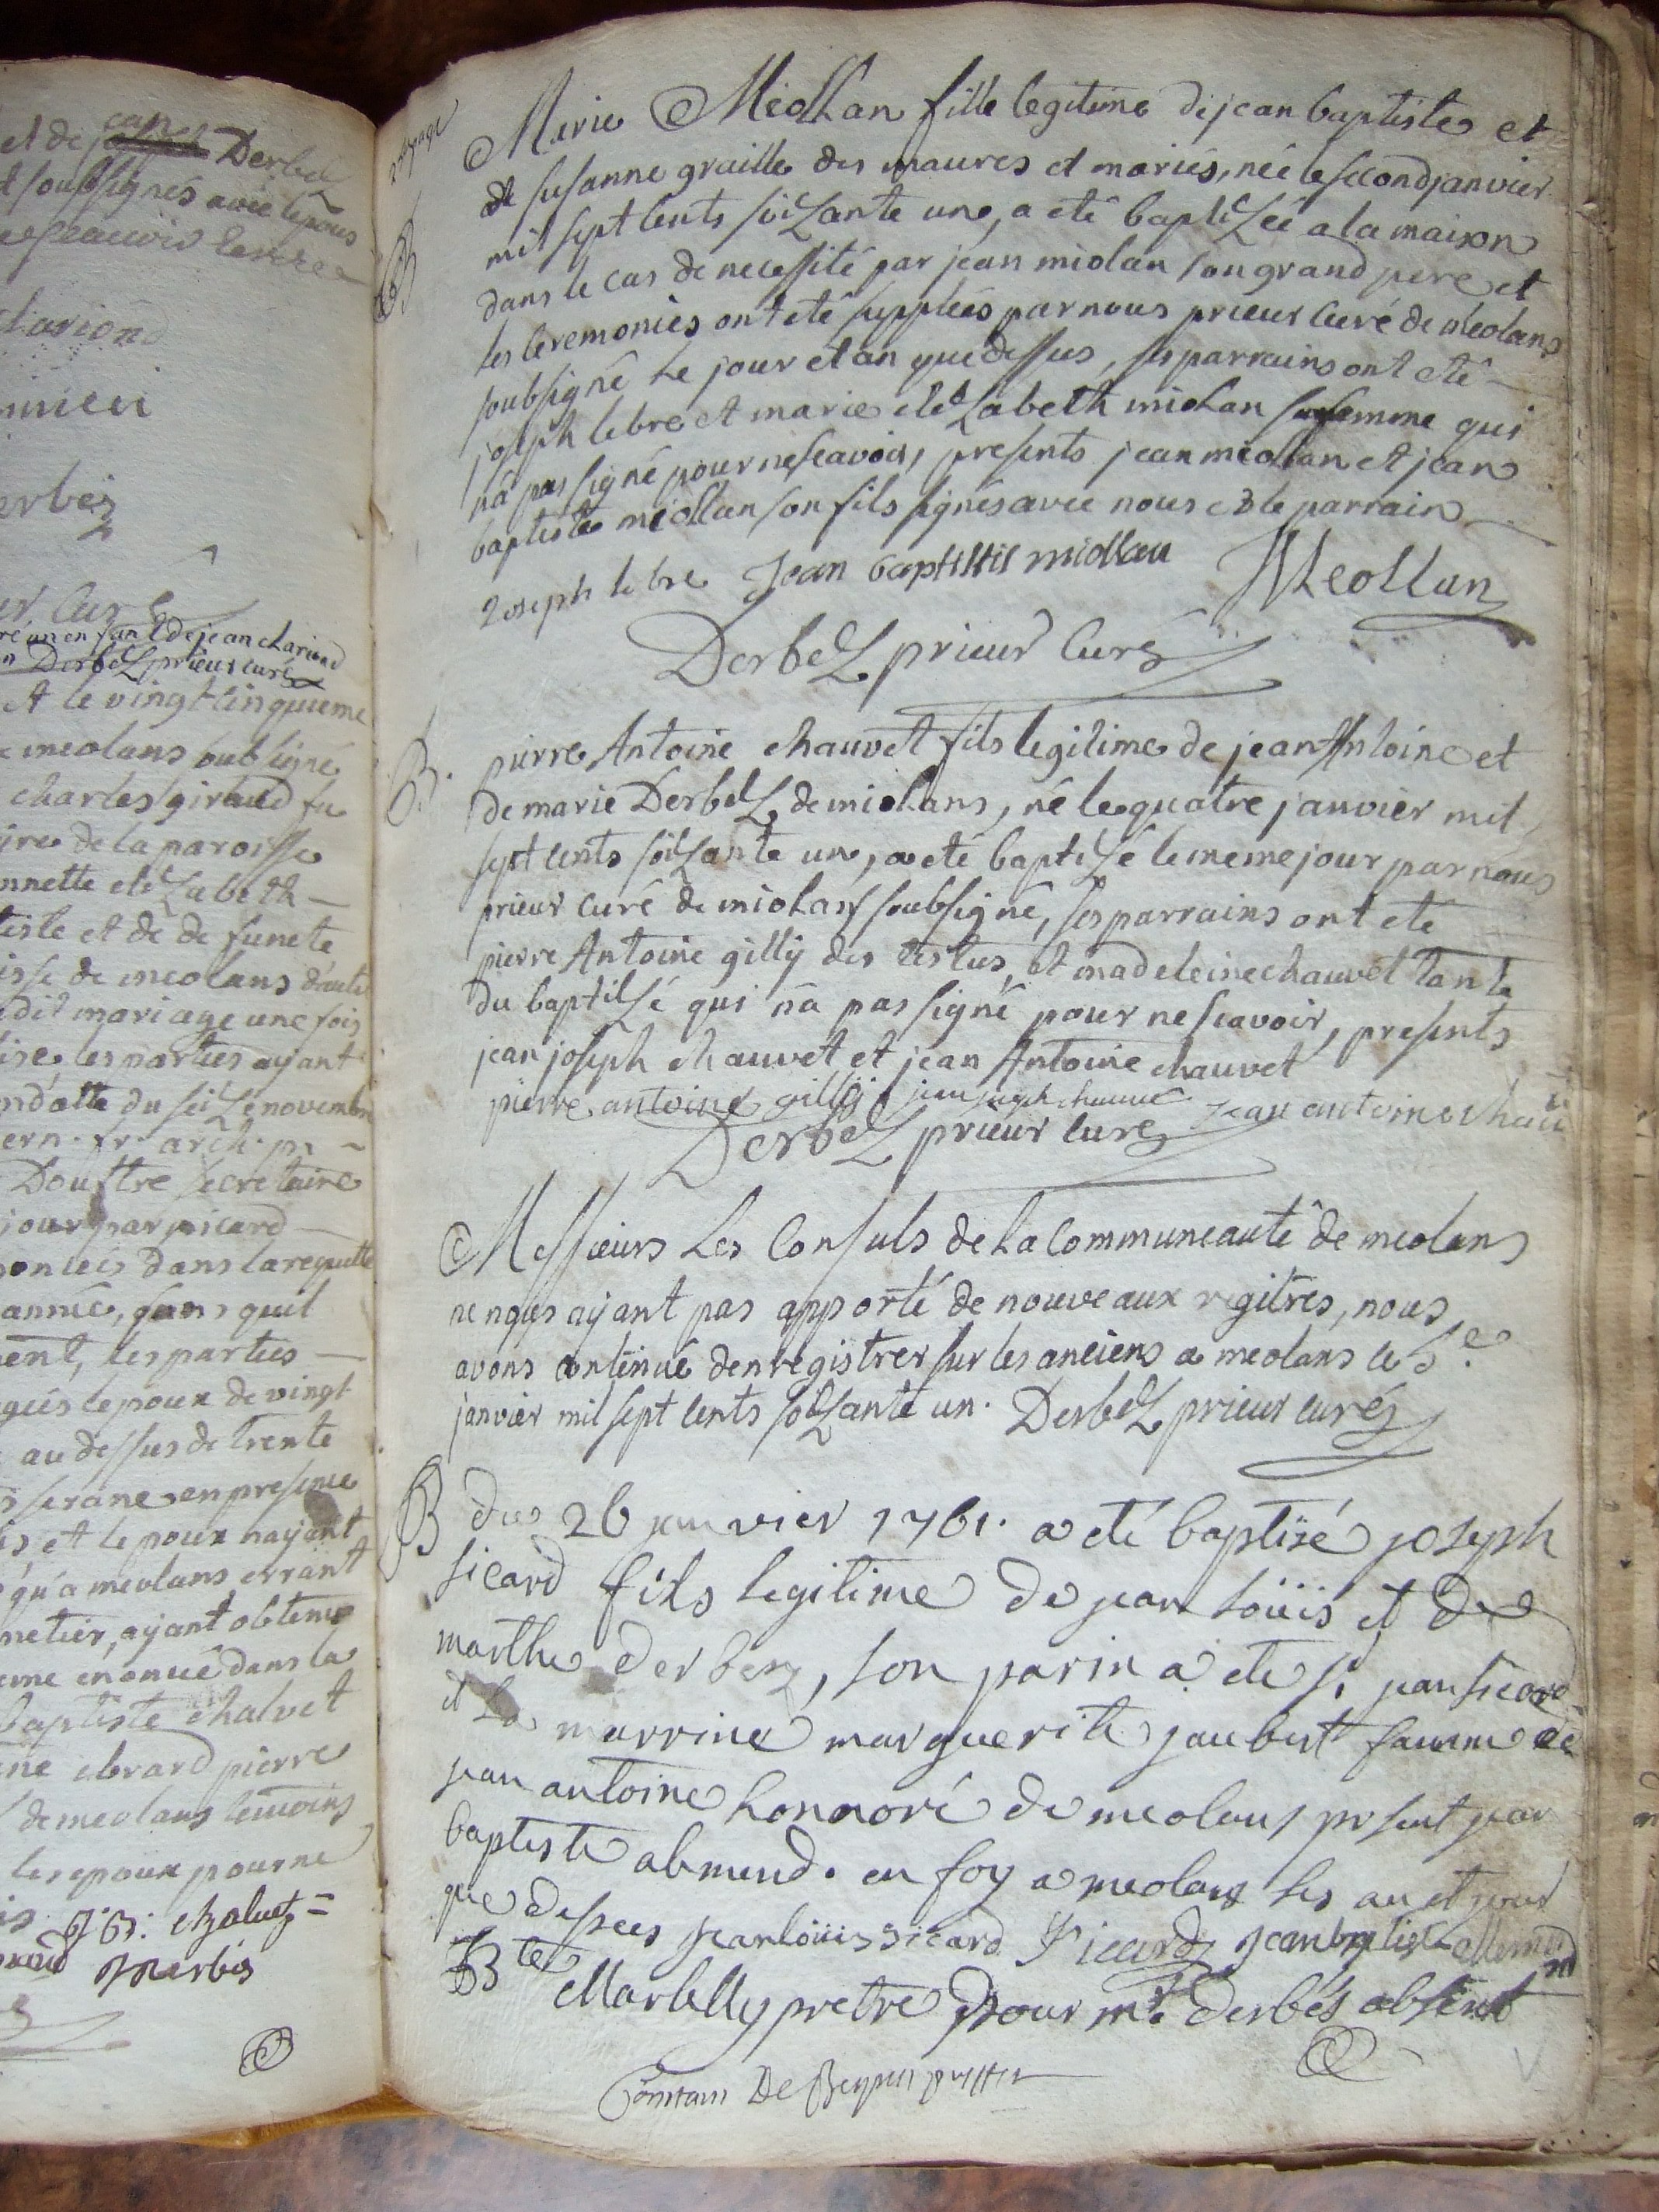 et de jean Derbez
et soubsignés avec l'epous
Derbez
un enfant de jean chariond
Derbez prieur curé
et le vingt cinquieme
meolans soubsigné
charles giraud fu
de la paroisse
elizabeth
et de de funete
de meolans d'autre
dit mariage une fois
les parties ayant
du seize novembre
Doustre secretaire
jour par picard
dans la requette
année, quil
les parties
lepoux de vingt
au dessus de trente
en presence
et lepoux nayant
qu'a meolans errant
metier, ayant obtenu
enoncé dans la
baptiste chalvet
ebrard pierre
de meolans temoins
les epoux pour ne
J. B. chaluet
Marie Meollan fille legitime de jean baptiste et
de susanne graille des maures et mariés, née le second janvier
mil sept cents soizante une, a eté baptizée a la maison
dans le cas de necessité par jean miolan son grand pere et
les ceremonies ont eté supplées par nous prieur curé de meolans
soubsigné le jour et an que dessus, ses parrains ont eté
joseph lebre et marie elizabeth miolan sa femme qui
n'a pas signé pour ne scavoir, presents jean meollan et jean
baptiste meollan son fils signés avec nous et le parrain
Joseph lebre Jean baptiste miollan Meollan
Derbez prieur curé
B. pierre Antoine chauvet fils legitime de jean Antoine et
de marie Derbez de miolans, né le quatre janvier mil
sept cents soizante un, a eté baptizé le meme jour par nous
prieur curé de miolans soubsigné, ses parrains ont eté
pierre Antoine gilly des testus, et madeleine chauvet tante
du baptisé qui n'a pas signé pour ne scavoir, presents
jean joseph chauvet et jean Antoine chauvet
pierre antoine gilly jean joseph chauvet jean antoine chau
Derbez prieur curé
Messieurs Les Consuls de la Communeauté de meolans
ne nous ayant pas apporté de nouveaux regitres, nous
avons continué denregistrer sur les anciens a meolans le 5e
janvier mil sept cents soizante un. Derbez prieur curé
B du 26 janvier 1761. a eté baptisé joseph
sicard fils legitime de jean loüis et de
marthe derbez, son parin a eté sr jean sicard
et la marrine marguerite jaubert famme de
jean antoine honnoré de meolans present jean
baptiste alemend. en foy a meolans les an et jour
que dessus jean loüis sicard Sicard jean baptiste allemand
Bte Martelly pretre pour mr derbés absent